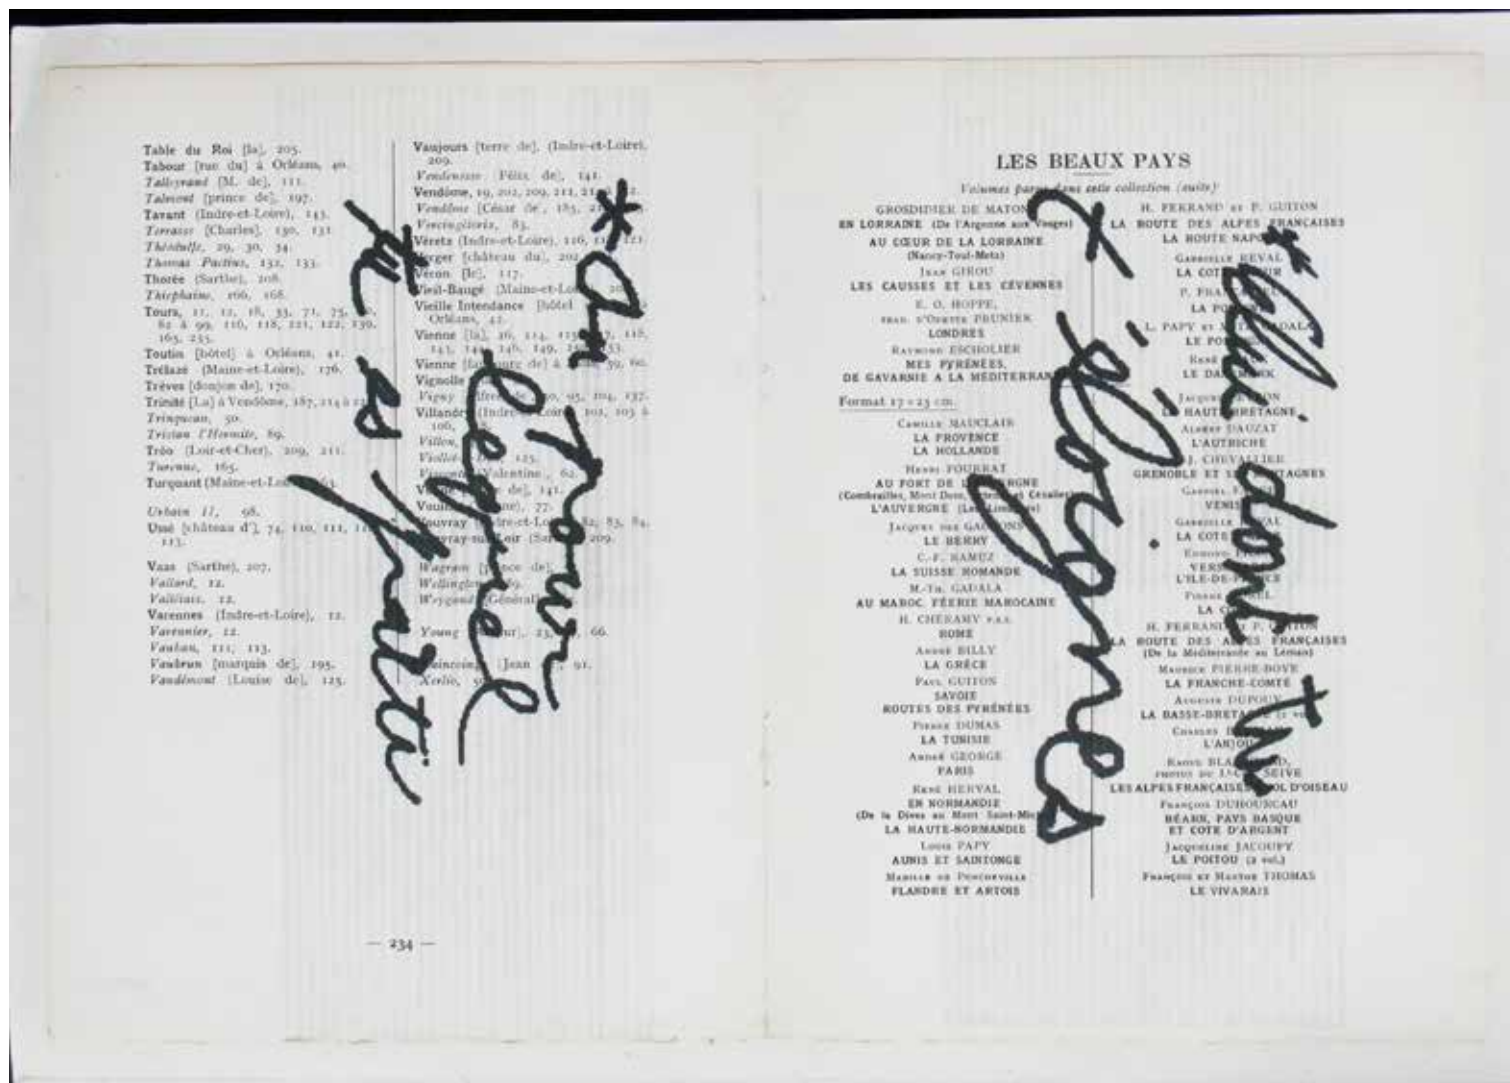 Table du Roi [la], 205.
Tabour [rue du] à Orléans, 40.
Talleyrand [M. de], 111.
Talmont [prince de], 197.
Tavant (Indre-et-Loire), 143.
Terrasse [Charles], 130, 131
Théodulfe, 29, 30, 34.
Thomas Pactius, 132, 133.
Thorée (Sarthe), 208.
Thiephaine, 166, 168.
Tours, 11, 12, 18, 33, 71, 75,
82 à 99, 116, 118, 121, 122, 139,
165, 235.
Toutin [hôtel] à Orléans, 41.
Trélazé (Maine-et-Loire), 176.
Trèves [donjon de], 170.
Trinité [La] à Vendôme, 187, 214 à
Trinquean, 50.
Tristan l'Hermite, 89.
Tréo (Loir-et-Cher), 209, 211.
Turenne, 165.
Turquant (Maine-et-Lo 63.
Urbain II, 98.
Ussé [château d'], 74, 110, 111,
113.
Vaas (Sarthe), 207.
Vallard, 12.
Varennes (Indre-et-Loire), 12.
Varennier, 12.
Vauban, 111, 113.
Vaubrun [marquis de], 195.
Vaudémont [Louise de], 125.
Vaujours [terre de], (Indre-et-Loire),
209.
Vendenesse Félix de], 141.
Vendôme, 19, 202, 209, 211,
Vendôme [César de], 185,
Vercingétorix, 83.
Véretz (Indre-et-Loire), 116, 121.
Verger [château du], 202
Véron [le], 117.
Vieil-Baugé (Maine-et-Lo
Vieille Intendance [hôtel à
Orléans, 42.
Vienne [la], 16, 114, 118,
143, 149,
Vienne [faubourg de] à 59, 60.
Vignolle
Vigny [Alfred de] 95, 104, 137.
Villandry (Indre-et-Loire) 102, 103 à
106,
Villon,
Viollet- 125.
Visconti [Valentine], 62.
de], 141.
77.
Vouvray (Indre-et-Loire) 82, 83, 84.
Vouvray-sur-Loir (Sarthe) 209.
Wagram [prince de],
Wellington, 69.
Weygand [Général]
Young 23, 66.
[Jean 91.
Xerlio,
— 234 —
* On
pour
lequel
tu es parti
LES BEAUX PAYS
Volumes parus dans cette collection (suite)
GROSDIDIER DE MATONS
EN LORRAINE (De l'Argonne aux Vosges)
AU CŒUR DE LA LORRAINE
(Nancy-Toul-Metz)
JEAN GIROU
LES CAUSSES ET LES CÉVENNES
E. O. HOPPE,
TRAD. D'ODETTE PRUNIER
LONDRES
RAYMOND ESCHOLIER
MES PYRÉNÉES,
DE GAVARNIE A LA MÉDITERRANÉE
Format 17 × 23 cm.
CAMILLE MAUCLAIR
LA PROVENCE
LA HOLLANDE
HENRI POURRAT
AU FORT DE L'AUVERGNE
(Combrailles, Mont Dore, Artense et Cézalier)
L'AUVERGNE (Les Limagnes)
JACQUES DES GACHONS
LE BERRY
C.-F. RAMUZ
LA SUISSE ROMANDE
M.-TH. GADALA
AU MAROC, FÉERIE MAROCAINE
H. CHERAMY P.S.S.
ROME
ANDRÉ BILLY
LA GRÈCE
PAUL GUITON
SAVOIE
ROUTES DES PYRÉNÉES
PIERRE DUMAS
LA TUNISIE
ANDRÉ GEORGE
PARIS
RENÉ HERVAL
EN NORMANDIE
(De la Dives au Mont Saint-Mic
LA HAUTE-NORMANDIE
LOUIS PAPY
AUNIS ET SAINTONGE
MABILLE DE PONCHEVILLE
FLANDRE ET ARTOIS
H. FERRAND ET P. GUITON
LA ROUTE DES ALPES FRANÇAISES
LA ROUTE NAPO
GABRIELLE REVAL
LA COTE
P. FRA
LA PO
L. PAPY ET M.-TH. GADALA
LE PO
RENÉ
LE DANEMARK
JACQUES
LA HAUTE-BRETAGNE
ALBERT DAUZAT
L'AUTRICHE
J. CHEVALLIER
GRENOBLE ET SES MONTAGNES
GABRIEL
VENISE
GABRIELLE REVAL
LA COTE
EDMOND
VERS
L'ILE-DE-FRANCE
PIERRE
LA
H. FERRAND ET P. GUITON
LA ROUTE DES ALPES FRANÇAISES
(De la Méditerranée au Léman)
MAURICE PIERRE-BOYE
LA FRANCHE-COMTÉ
AUGUSTE DUPOUY
LA BASSE-BRETAGNE (2 vol.)
CHARLES
L'ANJOU
RAOUL BLANCHARD,
PHOTOS DU SEIVE
LES ALPES FRANÇAISES A VOL D'OISEAU
FRANÇOIS DUHOURCAU
BÉARN, PAYS BASQUE
ET COTE D'ARGENT
JACQUELINE JACOUPY
LE POITOU (2 vol.)
FRANÇOIS ET MARTHE THOMAS
LE VIVARAIS
*celui dont tu
t'éloignes